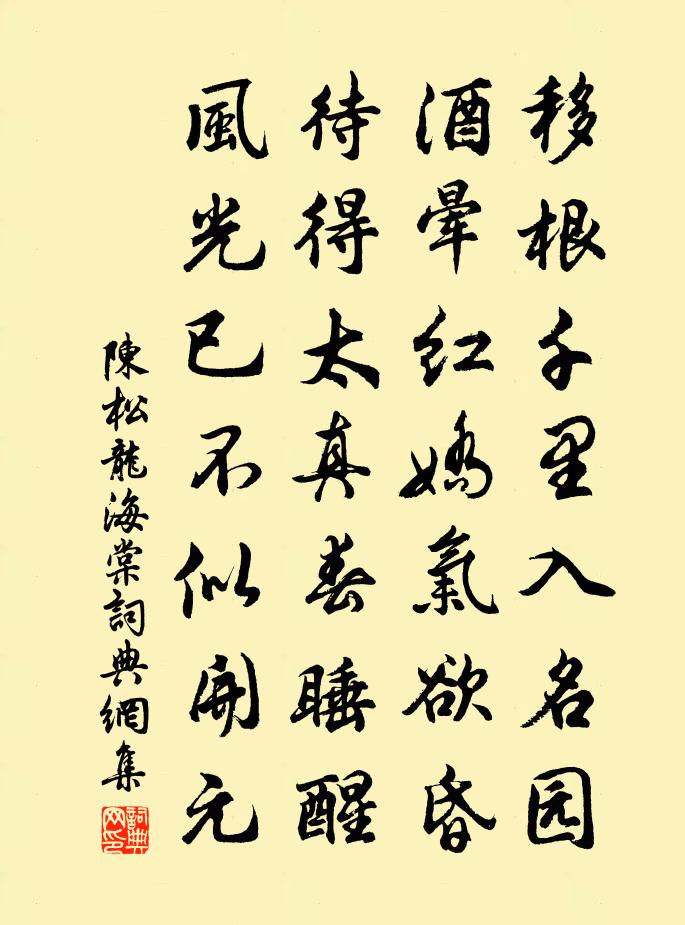 移根千里入名园
酒暈红嬌氣欲昏
待得太真春睡醒
風光已不似開元
陳松龍海棠詞典網集
詞典网印